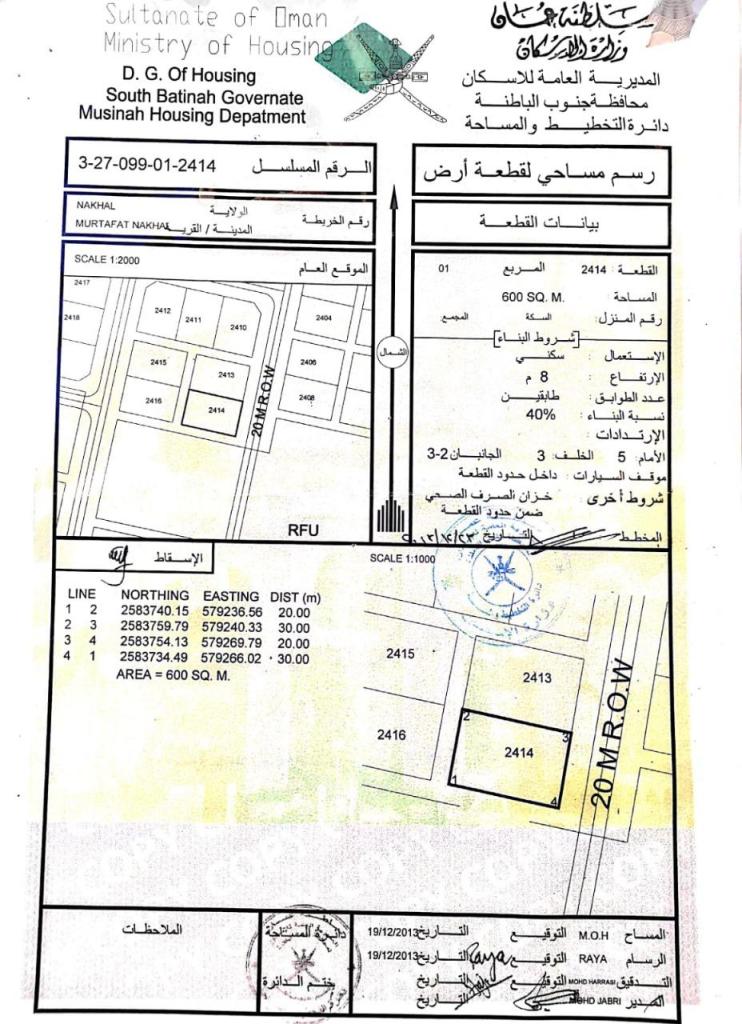 Sultanate of Oman
Ministry of Housing
D. G. Of Housing
South Batinah Governate
Musinah Housing Depatment
سلطنة عمان
وزارة الإسكان
المديرية العامة للاسكان
محافظة جنوب الباطنة
دائرة التخطيط والمساحة
3-27-099-01-2414 الرقم المسلسل
رسم مساحي لقطعة أرض
NAKHAL الولاية
رقم الخريطة
MURTAFAT NAKHAL المدينة / القرية
بيانات القطعة
SCALE 1:2000 الموقع العام
2417
2418
2412
2411
2410
2404
2415
2413
2406
2416
2414
2408
20 M R.O.W
RFU
الشمال
القطعة : 2414 المربع 01
المساحة : 600 SQ. M.
رقم المنزل: السكة المجمع
شروط البناء
الإستعمال : سكني
الإرتفاع : 8 م
عدد الطوابق : طابقين
نسبة البناء : 40%
الإرتدادات :
الأمام: 5 الخلف: 3 الجانبان 2-3
موقف السيارات : داخل حدود القطعة
شروط أخرى : خزان الصرف الصحي
ضمن حدود القطعة
المخطط التاريخ ٢٠١٣/١٢/٢٣
الإسقاط
SCALE 1:1000
LINE NORTHING EASTING DIST (m)
1 2 2583740.15 579236.56 20.00
2 3 2583759.79 579240.33 30.00
3 4 2583754.13 579269.79 20.00
4 1 2583734.49 579266.02 30.00
AREA = 600 SQ. M.
2415
2413
2416
2414
1
2
3
4
20 M R.O.W
COPY COPY COPY COPY
الملاحظات
دائرة المساحة
ختم الدائرة
المساح M.O.H التوقيع التاريخ 19/12/2013
الرسام RAYA التوقيع Raya التاريخ 19/12/2013
التدقيق MOHD HARRASI التوقيع التاريخ
المدير MOHD JABRI التوقيع التاريخ